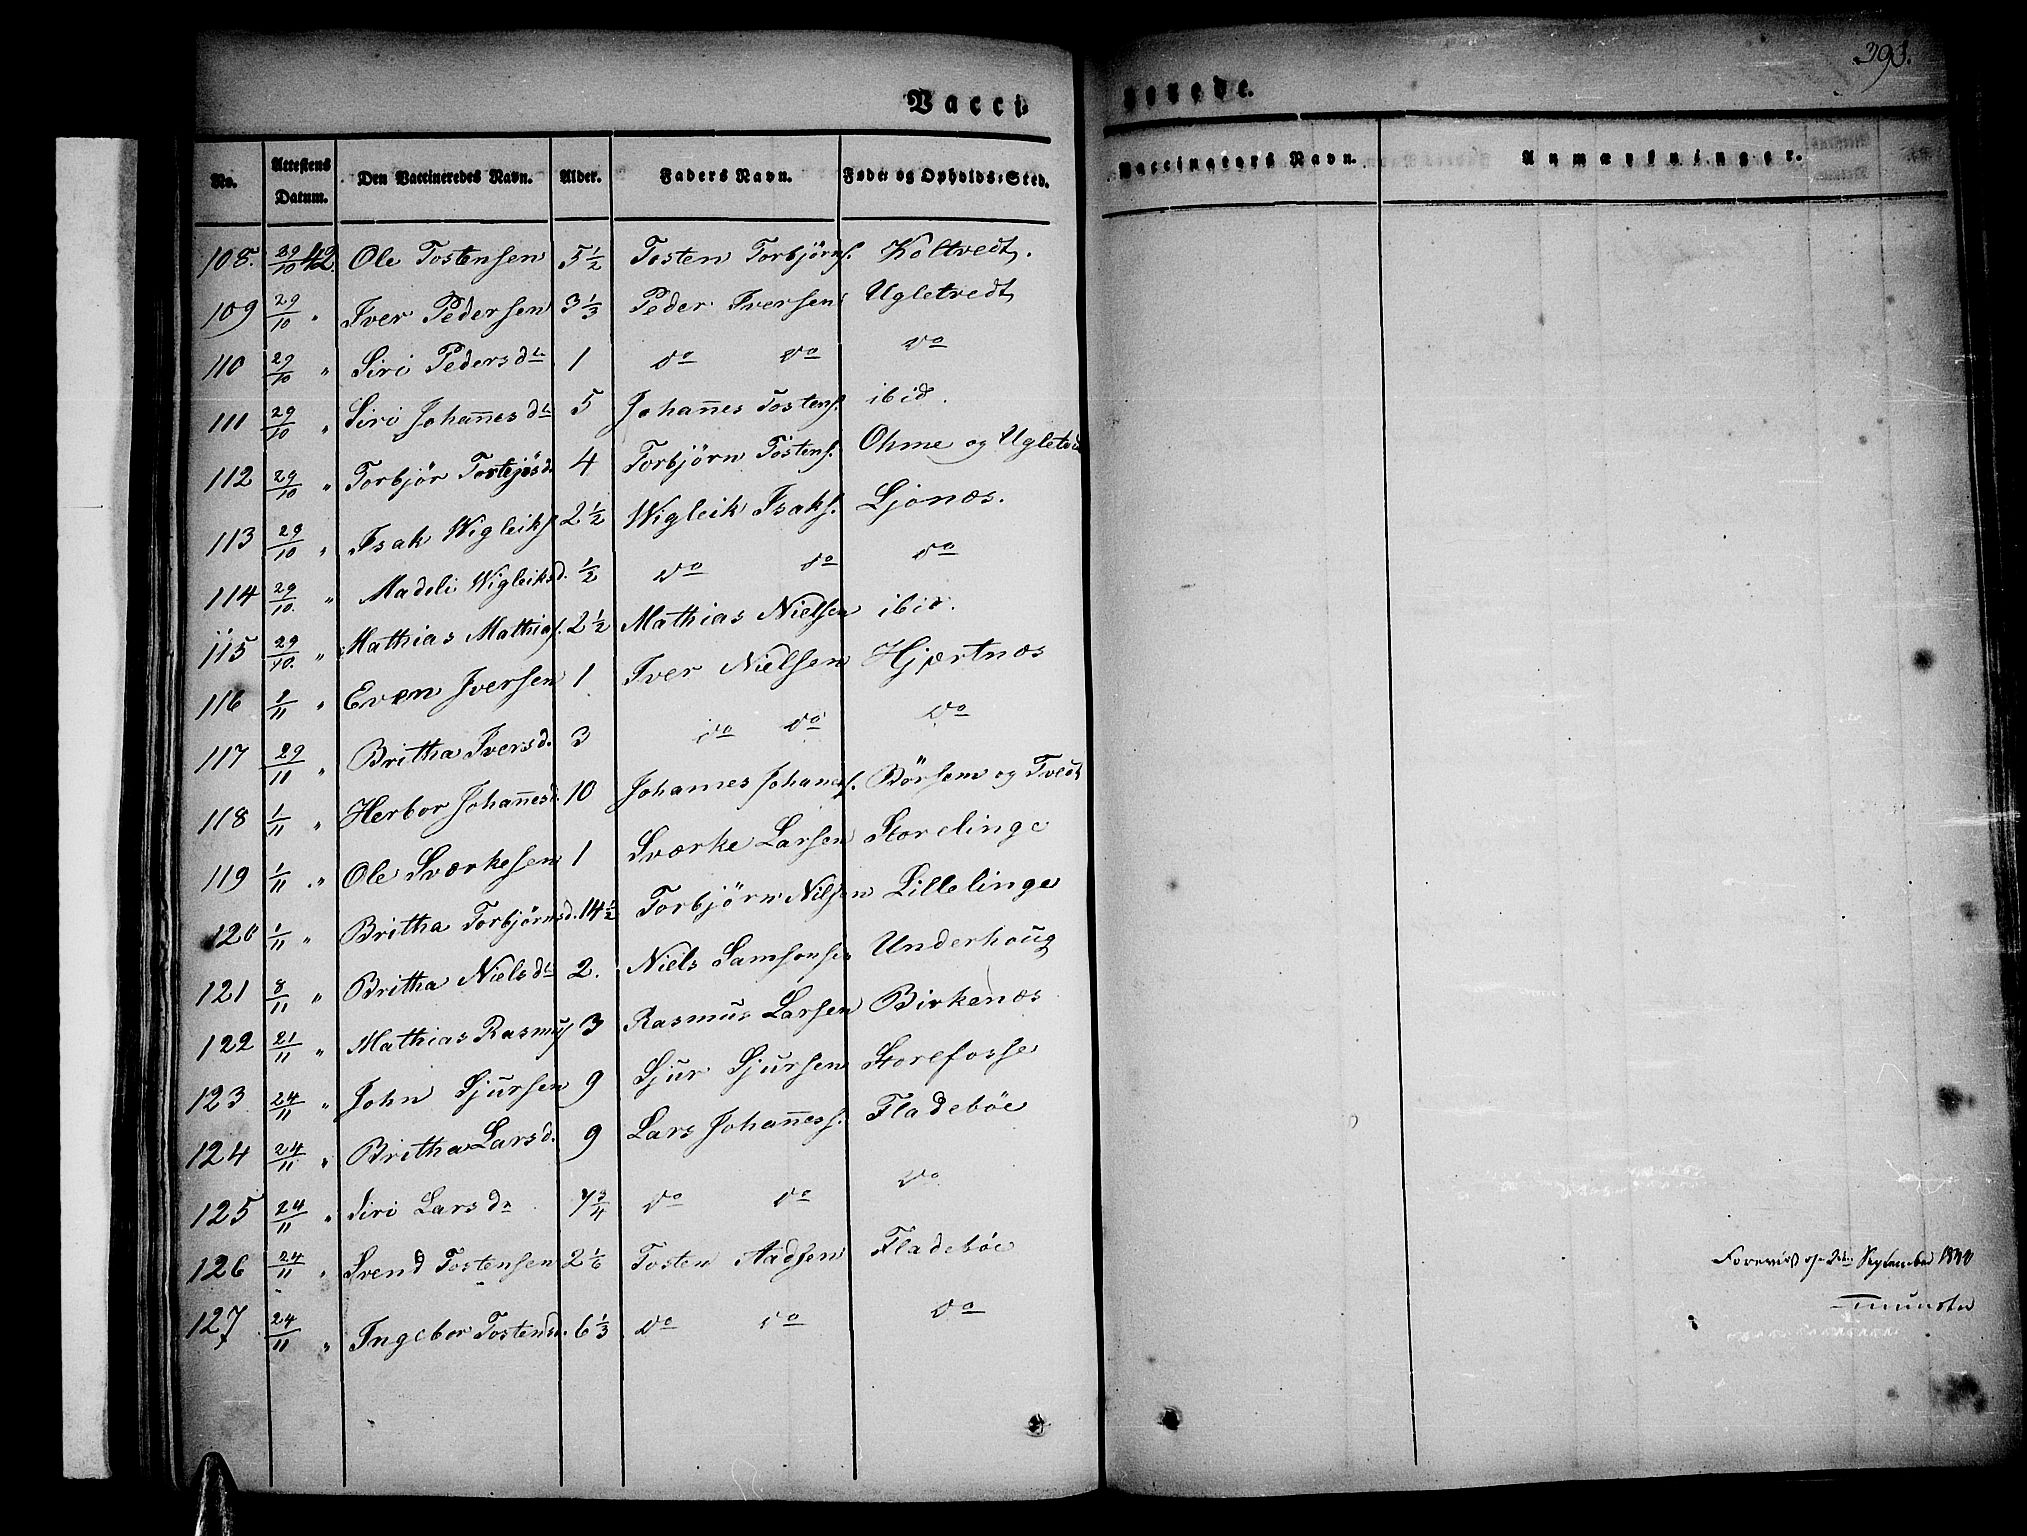 Vacci
nerede.
391.
No. Attestens Datum. Den Vaccineredes Navn. Alder. Faders Navn. Føde- og Opholds-Sted.
Vaccinateurs Navn. Anmærkninger.
108. 29/10 42 Ole Tostensen 5 1/2 Tosten Torbjörns. Koltvedt.
109 29/10 " Iver Pedersen 3 1/3 Peder Iversen Ugletvedt
110 29/10 " Siri Pedersdr 1 do do do
111 29/10 " Siri Johan̄esdr 5 Johan̄es Tostens. ibid.
112 29/10 " Torbjör 4 Torbjörn Tostens. Ohme og Ugletvedt
113 29/10 " Isak Wigleiks. 2 1/2 Wigleik Isaks. Ljonæs.
114 29/10 " Madeli Wigleiksd. 1/2 do do do
115 29/10 " Mathias Mathias. 2 1/2 Mathias Nielsen ibid.
116 1/11 " Even Iversen 1 Iver Nielsen Hjærtnæs
117 29/11 " Britha Iversd. 3 do do do
118 1/11 " Herbor Johan̄esd. 10 Johannes Johanes. Börsem og Tvedt
119 1/11 " Ole Sværkesen 1 Sværke Larsen Storelinge
120 1/11 " Britha Torbjörnsd. 14 1/2 Torbjörn Nilsen Lillelinge
121 8/11 " Britha Nielsdr 2. Niels Samsonsen Underhoug
122 21/11 " Mathias Rasmus. 3 Rasmus Larsen Birkenæs
123 24/11 " John Sjursen 9 Sjur Sjursen Storefosse
124 24/11 " Britha Larsd. 9 Lars Johan̄ess. Fladeböe
125 24/11 " Siri Larsdr 7 3/4 do do do
126 24/11 " Svend Tostensen 2 1/6 Tosten Aadsen Fladeböe
127 24/11 " Ingebor Tostensd. 6 1/3 do do do
Foreviist September
Munster